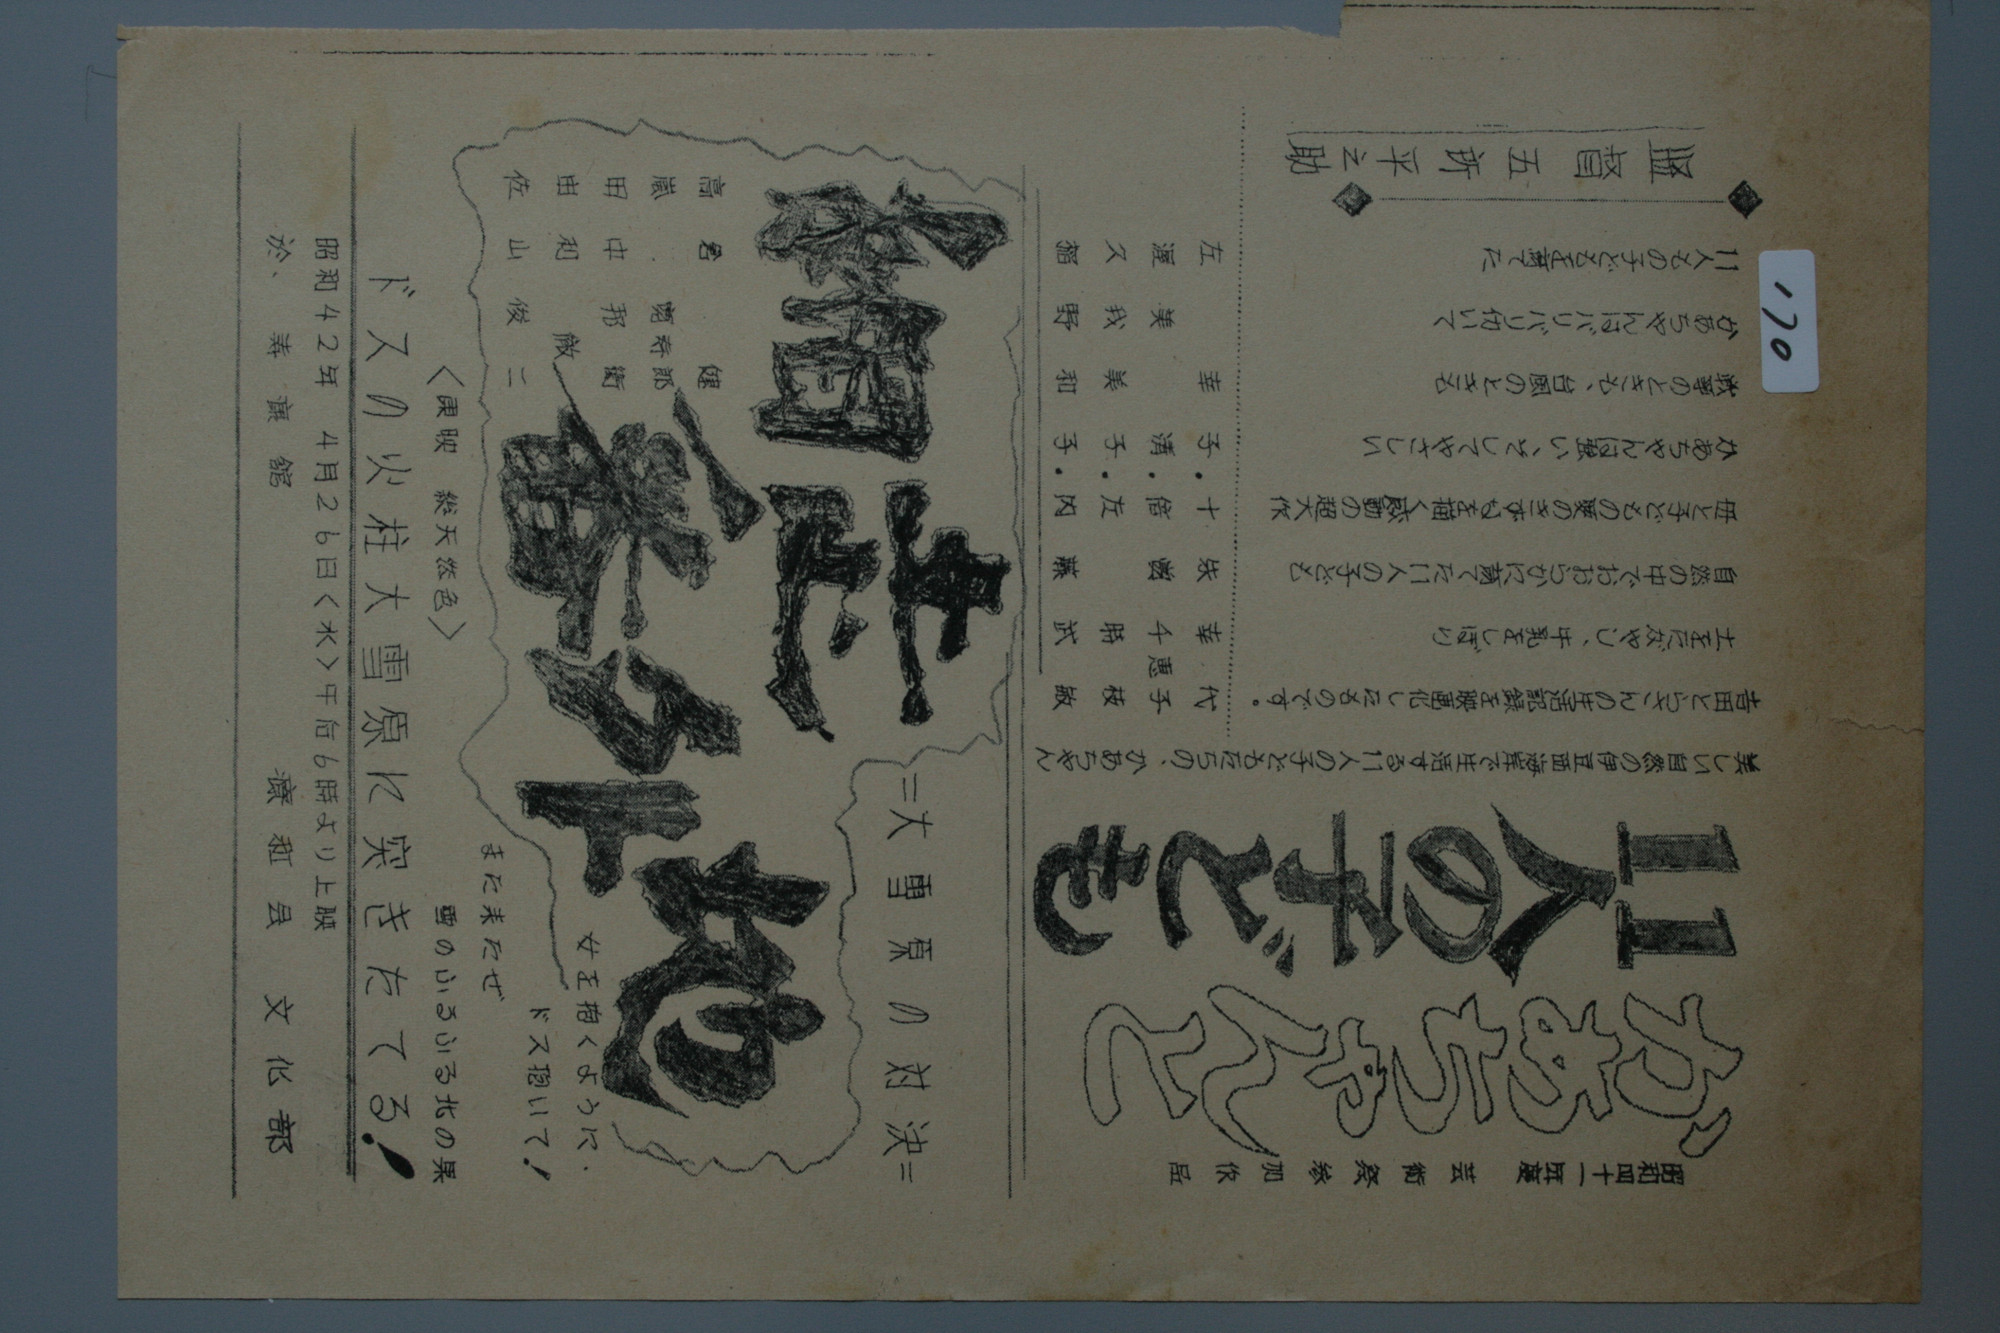 昭和四十一年度 芸術祭参加作品
かあちゃんと
11人の子ども
美しい自然の伊豆西海岸で生活する11人の子どもたちの、かあちゃん
吉田とらさんの生活記録を映画化したものです。
土をたがやし、牛乳をしぼり
自然の中でおおらかに育てた11人の子ども
母と子どもの愛のきずなを描く感動の超大作
かあちゃんは強い、そしてやさしい
戦争のときも、台風のときも
かあちゃんはバリバリ仂いて
11人もの子どもを育てた
監督 五所平之助
左 幸子・十朱幸代
渥美 清・倍 千恵子
久我美子・左 時枝
稲野和子・内藤武敏
網走
番外地
=大雪原の対決=
高倉 健
嵐・寛寿郎
田中邦衛
由利 徹
佐山俊二
女を抱くように、
ドス抱いて!
また来たぜ
雪のふるふる北の果
〈東映 総天然色〉
ドスの火柱大雪原に突きたてる!
昭和42年 4月26日〈水〉午后6時より上映
於、寿康館 療和会 文化部
170